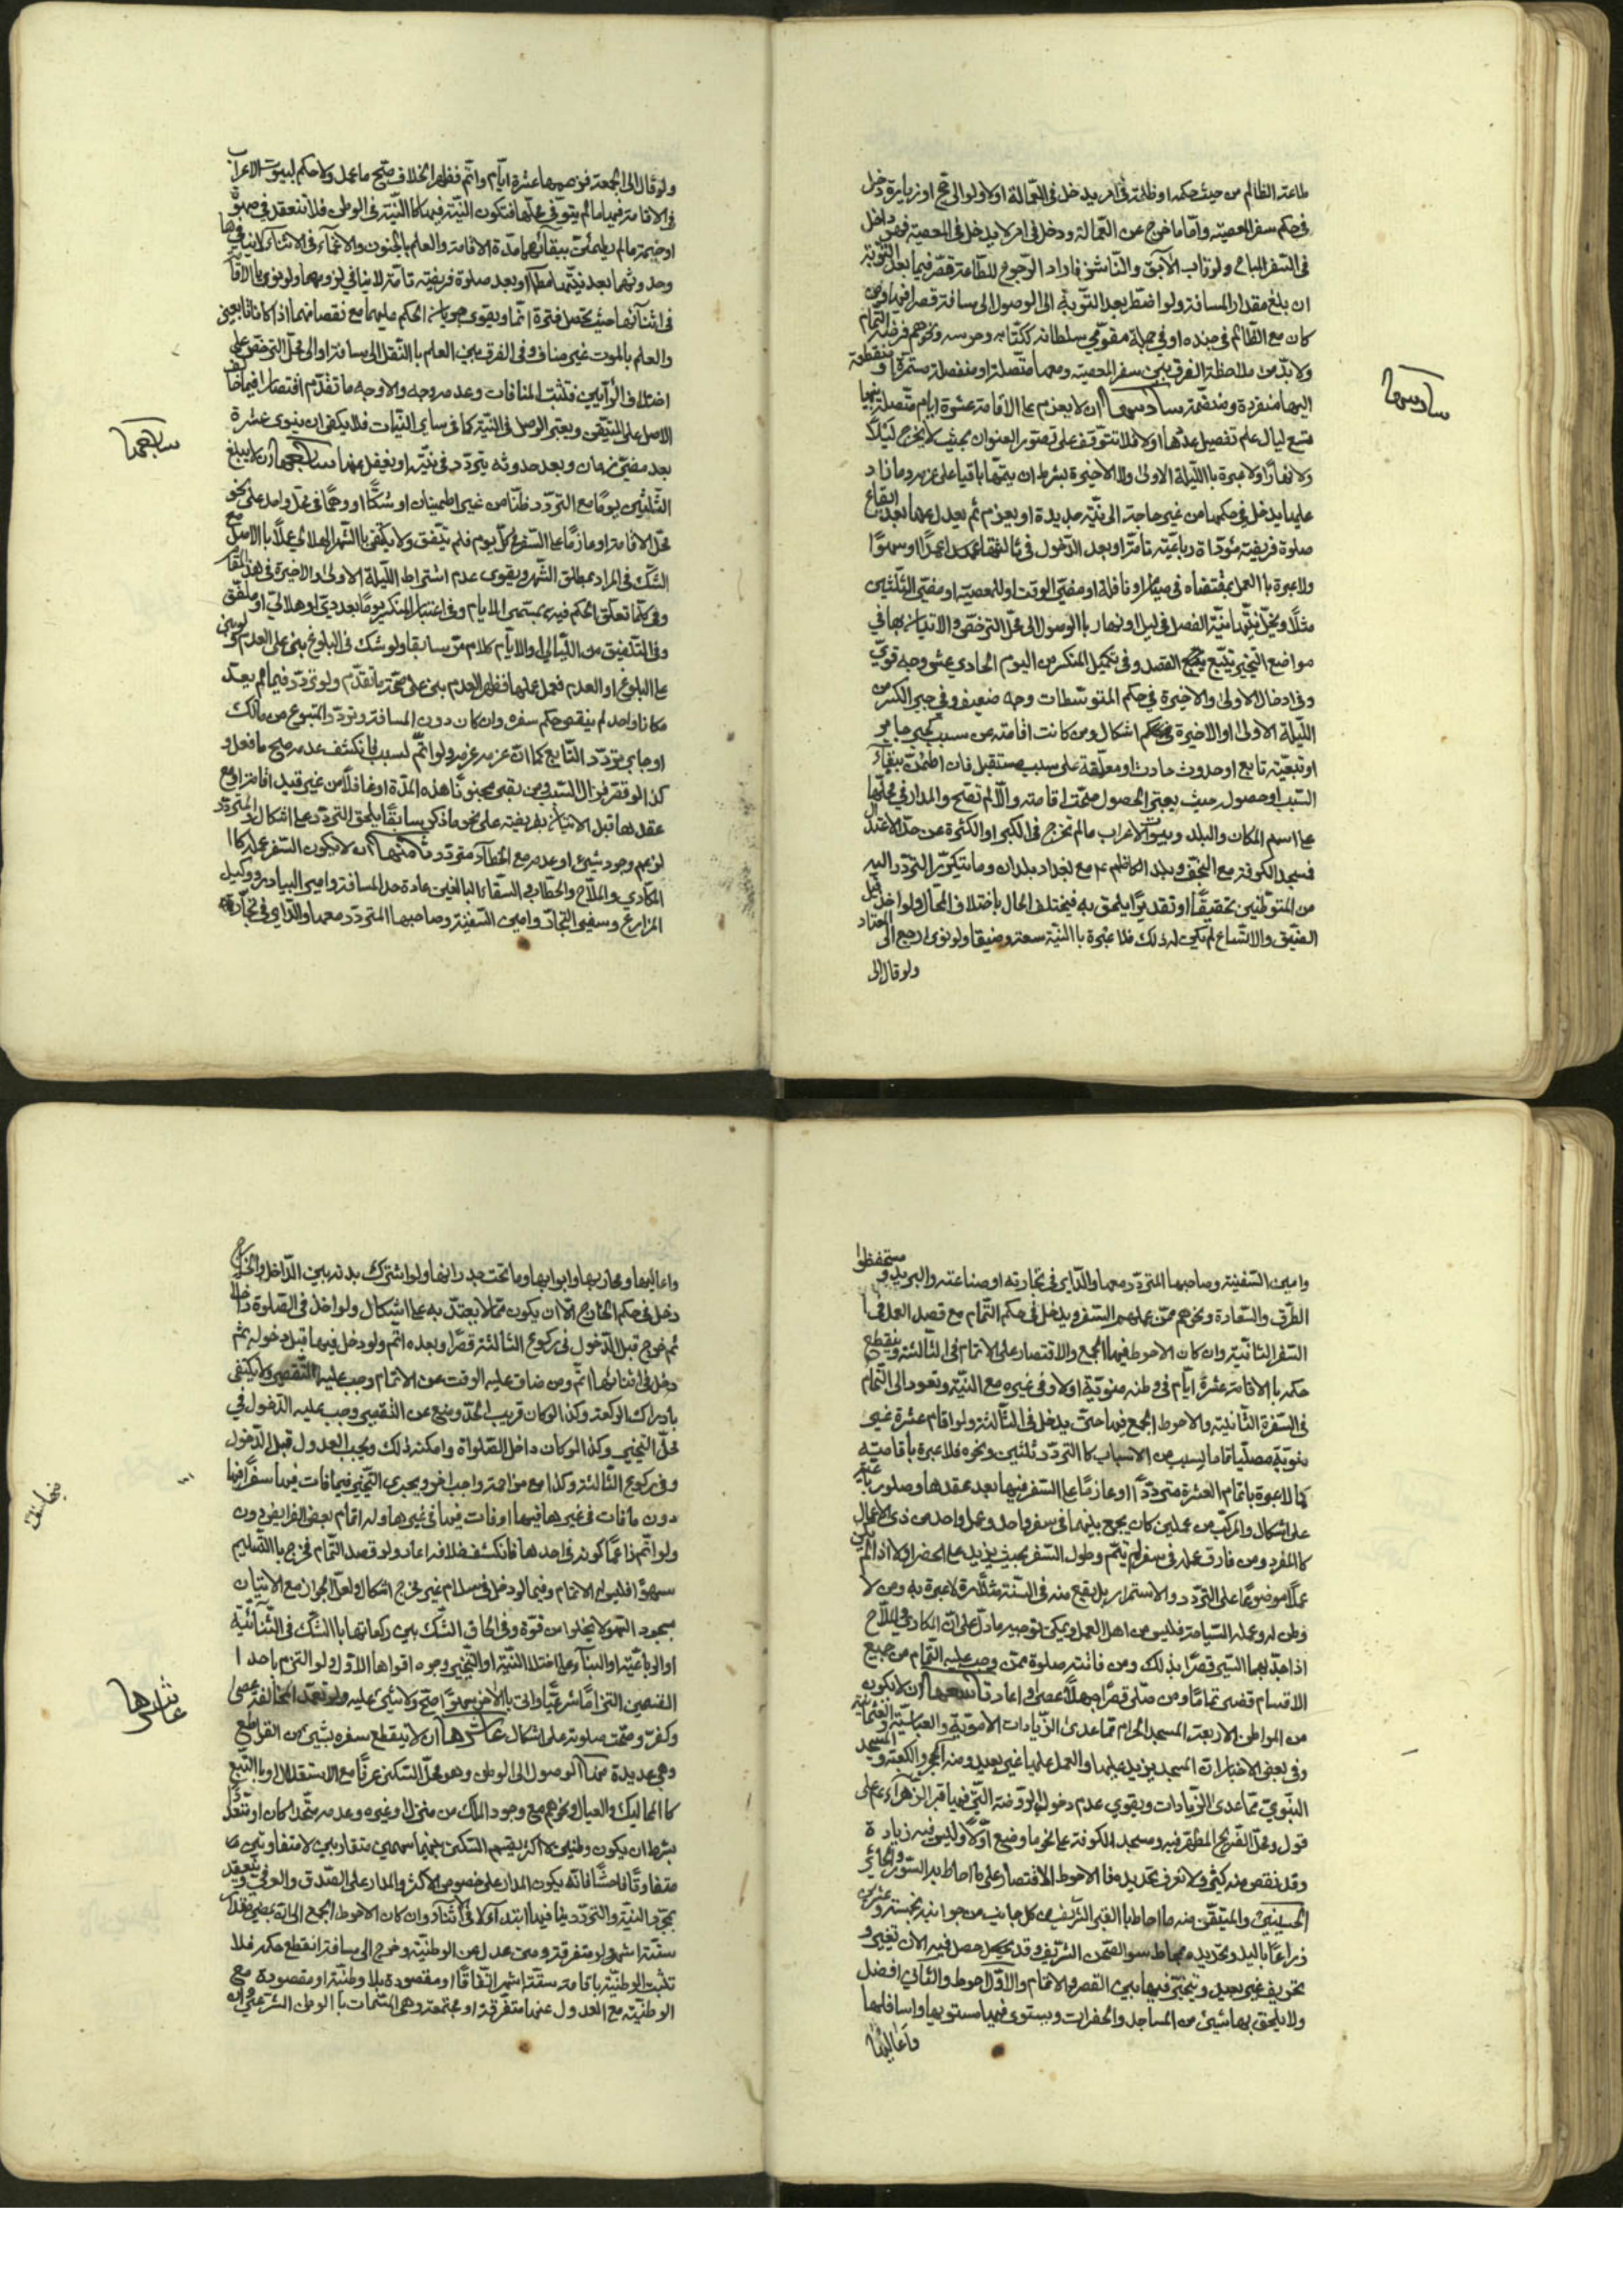 طاعته الظالم من حيث حكمه او ظلمه في امر يدخل في العمالة اولا ولو الى حج او زيارة دخل
في حكم سفر المعصية واما ما خرج عن العمالة ودخل في امر لا يدخل في المعصية فهو داخل
في السفر المباح ولو تاب الآبق والناشز فاراد الرجوع للطاعة قصر فيما بعد التوبة
ان بلغ مقدار المسافة ولو اضطر بعد التوبة الى الوصول الى مسافة قصر فيها ومن
كان مع الظالم في جنده او في جملة مقومي سلطانه ككتابه وحرسه ونحوهم فرضه التمام
ولا بد من ملاحظة الفرق بين سفر المعصية ومعها متصلة او منفصلة مستمرة او منقطعة
اليها منفردة ومنضمة سادسها ان لا يعزم على الاقامة عشرة ايام متصلة بينها
تسع ليال علم تفصيل عددها اولا فلا تتوقف على تصور العنوان بحيث لا يخرج ليلا
ولا نهارا ولا عبرة بالليلة الاولى ولا الاخيرة بشرط ان يتمها باقيا على عزمه وما زاد
عليها يدخل في حكمها من غير حاجة الى نية جديدة او يعزم ثم يعدل عنها بعد ايقاع
صلوة فريضة مؤداة رباعية تامة او بعد الدخول في ثالثتها عمدا او سهوا
ولا عبرة بالعمل بمقتضاه في صيام او نافلة او مضي الوقت او المعصية او مضي الثلثين
مثلا ويخل بنيتها نية الفصل في ليل او نهار بالوصول الى محل الترخص والاتيان بها في
مواضع التخيير بتبع القصد وفي تكميل المنكسر من اليوم الحادي عشر وجه قوي
وفي ادخال الاولى والاخيرة في حكم المتوسطات وجه ضعيف وفي جبر الكسر من
الليلة الاولى او الاخيرة اشكال ومن كانت اقامته عن سبب كجبر جابر
او تبعية تابع او حدوث حادث او معلقة على سبب مستقبل فان اطمئن ببقاء
السبب او حصوله حيث يعتبر الحصول صحت اقامته والا لم تصح والمدار في محلها
على اسم المكان والبلد وبيوت الاعراب ما لم تخرج في الكبر او الكثرة عن حد الاعتدال
فمسجد الكوفة مع النجف وبلد الكاظم ع مع بغداد بلدان وما يتكرر التردد اليه
من المتوطنين تحقيقا او تقديرا يلحق به فيختلف الحال باختلاف المحال ولو اخل قبل
الضيق والاتساع لم يكن له ذلك فلا عبرة بالنية سعة وضيقا ولو نوى ارجع الى المعتاد
ولو قال الى
سادسها
ولو قال الى الجمعة فزعمها عشرة ايام واتم فظهر الخلاف صح ما عمل ولا حكم لبيوت الاعراب
في الاقامة فيها ما لم يتوقف عليها فتكون النية فيها كالنية في الوطن فلا تنعقد في صورة
او خيمة ما لم يطمئن ببقائهما مدة الاقامة والعلم بالجنون والاغماء في الاثناء لا ينافيها
وحدوثهما بعد نيتها مطلقا او بعد صلوة فريضة تامة لا ينافي لزومها ولو نوى الاقامة
في اثنائها حيث تحصل فترة اتما ويقوى جريان الحكم عليهما مع نقصانهما اذا كانا تابعين
والعلم بالموت غير مناف وفي الفرق بين العلم بالنقل الى مسافة او الى محل الترخص على
اختلاف الرأيين فتثبت المنافات وعدمه وجه والاوجه ما تقدم اقتصارا فيما خالف
الاصل على المتيقن ويعتبر الوصل في النية كما في سائر النيات فلا يكفي ان ينوي عشرة
بعد مضي زمان وبعد حدوثه يتردد في نيته او يغفل عنها سابعها ان لا يبلغ
الثلثين يوما مع التردد ظنا من غير اطمينان او شكا او وهما في محل واحد على نحو
محل الاقامة او عازما على السفر كل يوم فلم يتفق ولا يكتفى بالشهر الهلالي عملا بالاصل مع
الشك في المراد بمطلق الشهر ويقوى عدم اشتراط الليلة الاولى والاخيرة في هذا المقام
وفي كلما تعلق الحكم فيه بمسمى الايام وفي اعتبار المنكسر يوما بعددي او هلالي او ملفق
وفي التلفيق من الليالي والايام كلام مر سابقا ولو شك في البلوغ بنى على العدم ولو بنى
على البلوغ او العدم فعمل عليها فظهر العدم بنى على صحة ما تقدم ولو تردد فيما لم يعد
مكانا واحد لم ينقص حكم سفره وان كان دون المسافة وتردد المتبوع من مالك
او جابر بتردد التابع كما ان عزمه عزمه ولو اتم لسبب فانكشف عدمه صح ما فعل و
كذا لو قصر فزال السبب ومن بقي مجنونا هذه المدة او غافلا من غير قيد اقامة او مع
عقدها قبل الاتيان بفريضة على نحو ما ذكر سابقا يلحق التردد على اشكال والمتردد
لزعم وجود شيء او عدمه مع الخطأ متردد ثامنها ان لا يكون السفر عمله كالا
لمكاري والملاح والحطاب والسقا البالغين عادة حد المسافة وامين البيادر ووكيل
المزارع وسفير التجار وامين السفينة وصاحبها المتردد معها والداير في تجارته
سابعها
وامين السفينة وصاحبها المتردد معها والداير في تجارته او صناعته والبريد ومستحفظوا
الطرق والسعادة ونحوهم ممن عملهم السفر ويدخل في حكم التمام مع قصد العمل في
السفر الثانية وان كان الاحوط فيها الجمع والاقتصار على الاتمام في الثالثة وينقطع
حكمه بالاقامة عشرة ايام في وطنه منوية اولا وفي غيره مع النية وتعود الى التمام
في السفرة الثانية والاحوط الجمع فيها حتى يدخل في الثالثة ولو اقام عشرة غير
منوية مصليا تماما لسبب من الاسباب كالتردد ثلثين ونحوه فلا عبرة باقامته
كما لا عبرة باتمام العشرة مترددا او عازما على السفر فيها بعد عقدها وصلوة رباعية
على اشكال والمركب من عملين كان يجمع بينهما في سفر واحد وعمل واحد من ذي الاعمال
كالمفرد ومن فارق عمله في سفر لم يتم وطول السفر بحيث يزيد على الحضر اولا اذا لم يكن
عملا موضوعا على التردد والاستمرار بل يقع منه في السنة مثلا مرة لا عبرة به ومن لا
وطن له وعمله السياحة فليس من اهل العمل ويمكن توجيه ما دل على ان المكاري والملاح
اذا جد بهما السير قصرا بذلك ومن فاتته صلوة ممن وجب عليه التمام من جميع
الاقسام قضى تماما ومن صلى قصرا جهلا عصى واعاد تاسعها ان لا يكون
من المواطن الاربعة المسجد الحرام مما عدى الزيادات الاموية والعباسية والعثمانية
وفي بعض الاخبار ان المسجد يزيد عليها والعمل عليها غير بعيد ومنه الحجر والكعبة ومسجد
النبوي مما عدى الزيادات ويقوى عدم دخول الروضة التي فيها قبر الزهراء ع على
قول ومحل الضريح المطهر فيه ومسجد الكوفة على نحو ما وضع اولا وليس فيه زيادة
وقد نقص منه كثير ولا نعرف تحديده فالاحوط الاقتصار على ما احاط به السور والحائر
الحسيني والمتيقن منه ما احاط بالقبر الشريف من كل جانب من جوانبه خمسة وعشرين
ذراعا باليد وتحديده بمحاط سور الصحن الشريف وقد حصل فيه الان تغيير و
تحريف غير بعيد ويتخير فيها بين القصر والاتمام والاول احوط والثاني افضل
ولا يلحق بها شيئ من المساجد والحضرات ويستوى فيها مستويها واسافلها
واعاليها
واعاليها ومحاريبها وابوابها وما تحت جدرانها ولو اشترك بدنه بين الداخل والخارج
دخل في حكم الخارج الا ان يكون مما لا يعتد به على اشكال ولو دخل في الصلوة داخلا
ثم خرج قبل الدخول في ركوع الثالثة قصرا وبعده اتم ولو دخل فيها قبل دخوله ثم
دخل في اثنائها اتم ومن ضاق عليه الوقت عن الاتمام وجب عليه التقصير ولا يكتفى
بادراك الركعة وكذا لو كان قريب الحد ومنع عن التقصير وجب عليه الدخول في
محل التخيير وكذا لو كان داخل الصلواة وامكنه ذلك ويجب العدول قبل الدخول
وفي ركوع الثالثة وكذا مع مزاحمة واجب اخر ويجري التخيير فيما فات فيها سفرا فيها
دون ما فات في غيرها فيها او فات فيها في غيرها وله اتمام بعض الفرايض دون
ولو اتم زاعما كونه في احدها فانكشف خلافه اعاد ولو قصد التمام فخرج بالتسليم
سهوا فليس له الاتمام وفيما لو دخل في سلام غير مخرج اشكال ولعل الجواز مع الاتيان
بسجود السهو لا يخلوا من قوة وفي الحاق الشك بين ركعاتها بالشك في الثنائية
او الرباعية او البناء على اختلاف النية او التخيير وجوه اقواها الاول ولو التزم باحدا
القسمين التزاما شرعيا واتى بالاخر سهوا صح ولا شيء عليه ولو تعمد المخالفة عصى
وكفر وصحت صلوته على اشكال عاشرها ان لا ينقطع سفره بشيئ من القواطع
وهي عديدة منها الوصول الى الوطن وهو محل السكنى عرفا مع الاستقلال او بالتبع
كالمماليك والعيال ونحوهم مع وجود الملك من منزل وغيره وعدمه متحدا كان او متعددا
بشرط ان يكون وطنين لا اكثر يقسم السكنى بينهما سهمين متقاربين لا متفاوتين
متفاوتا فاحشا فانه يكون المدار على خصوص الاكثر والمدار على الصدق والعرفي ويتعقد
بمجرد النية والتردد ينافيها ابتداء لا في اثناء وان كان الاحوط الجمع الى ان يمضي مقدار
ستة اشهر ولو متفرقة ومتى عدل عن الوطنية وخرج الى مسافة انقطع حكمه فلا
تثبت الوطنية باقامة ستة اشهر اتفاقا او مقصودة بلا وطنية او مقصودة مع
الوطنية مع العدول عنها متفرقة او مجتمعة وهي المسماة بالوطن الشرعي
عاشرها